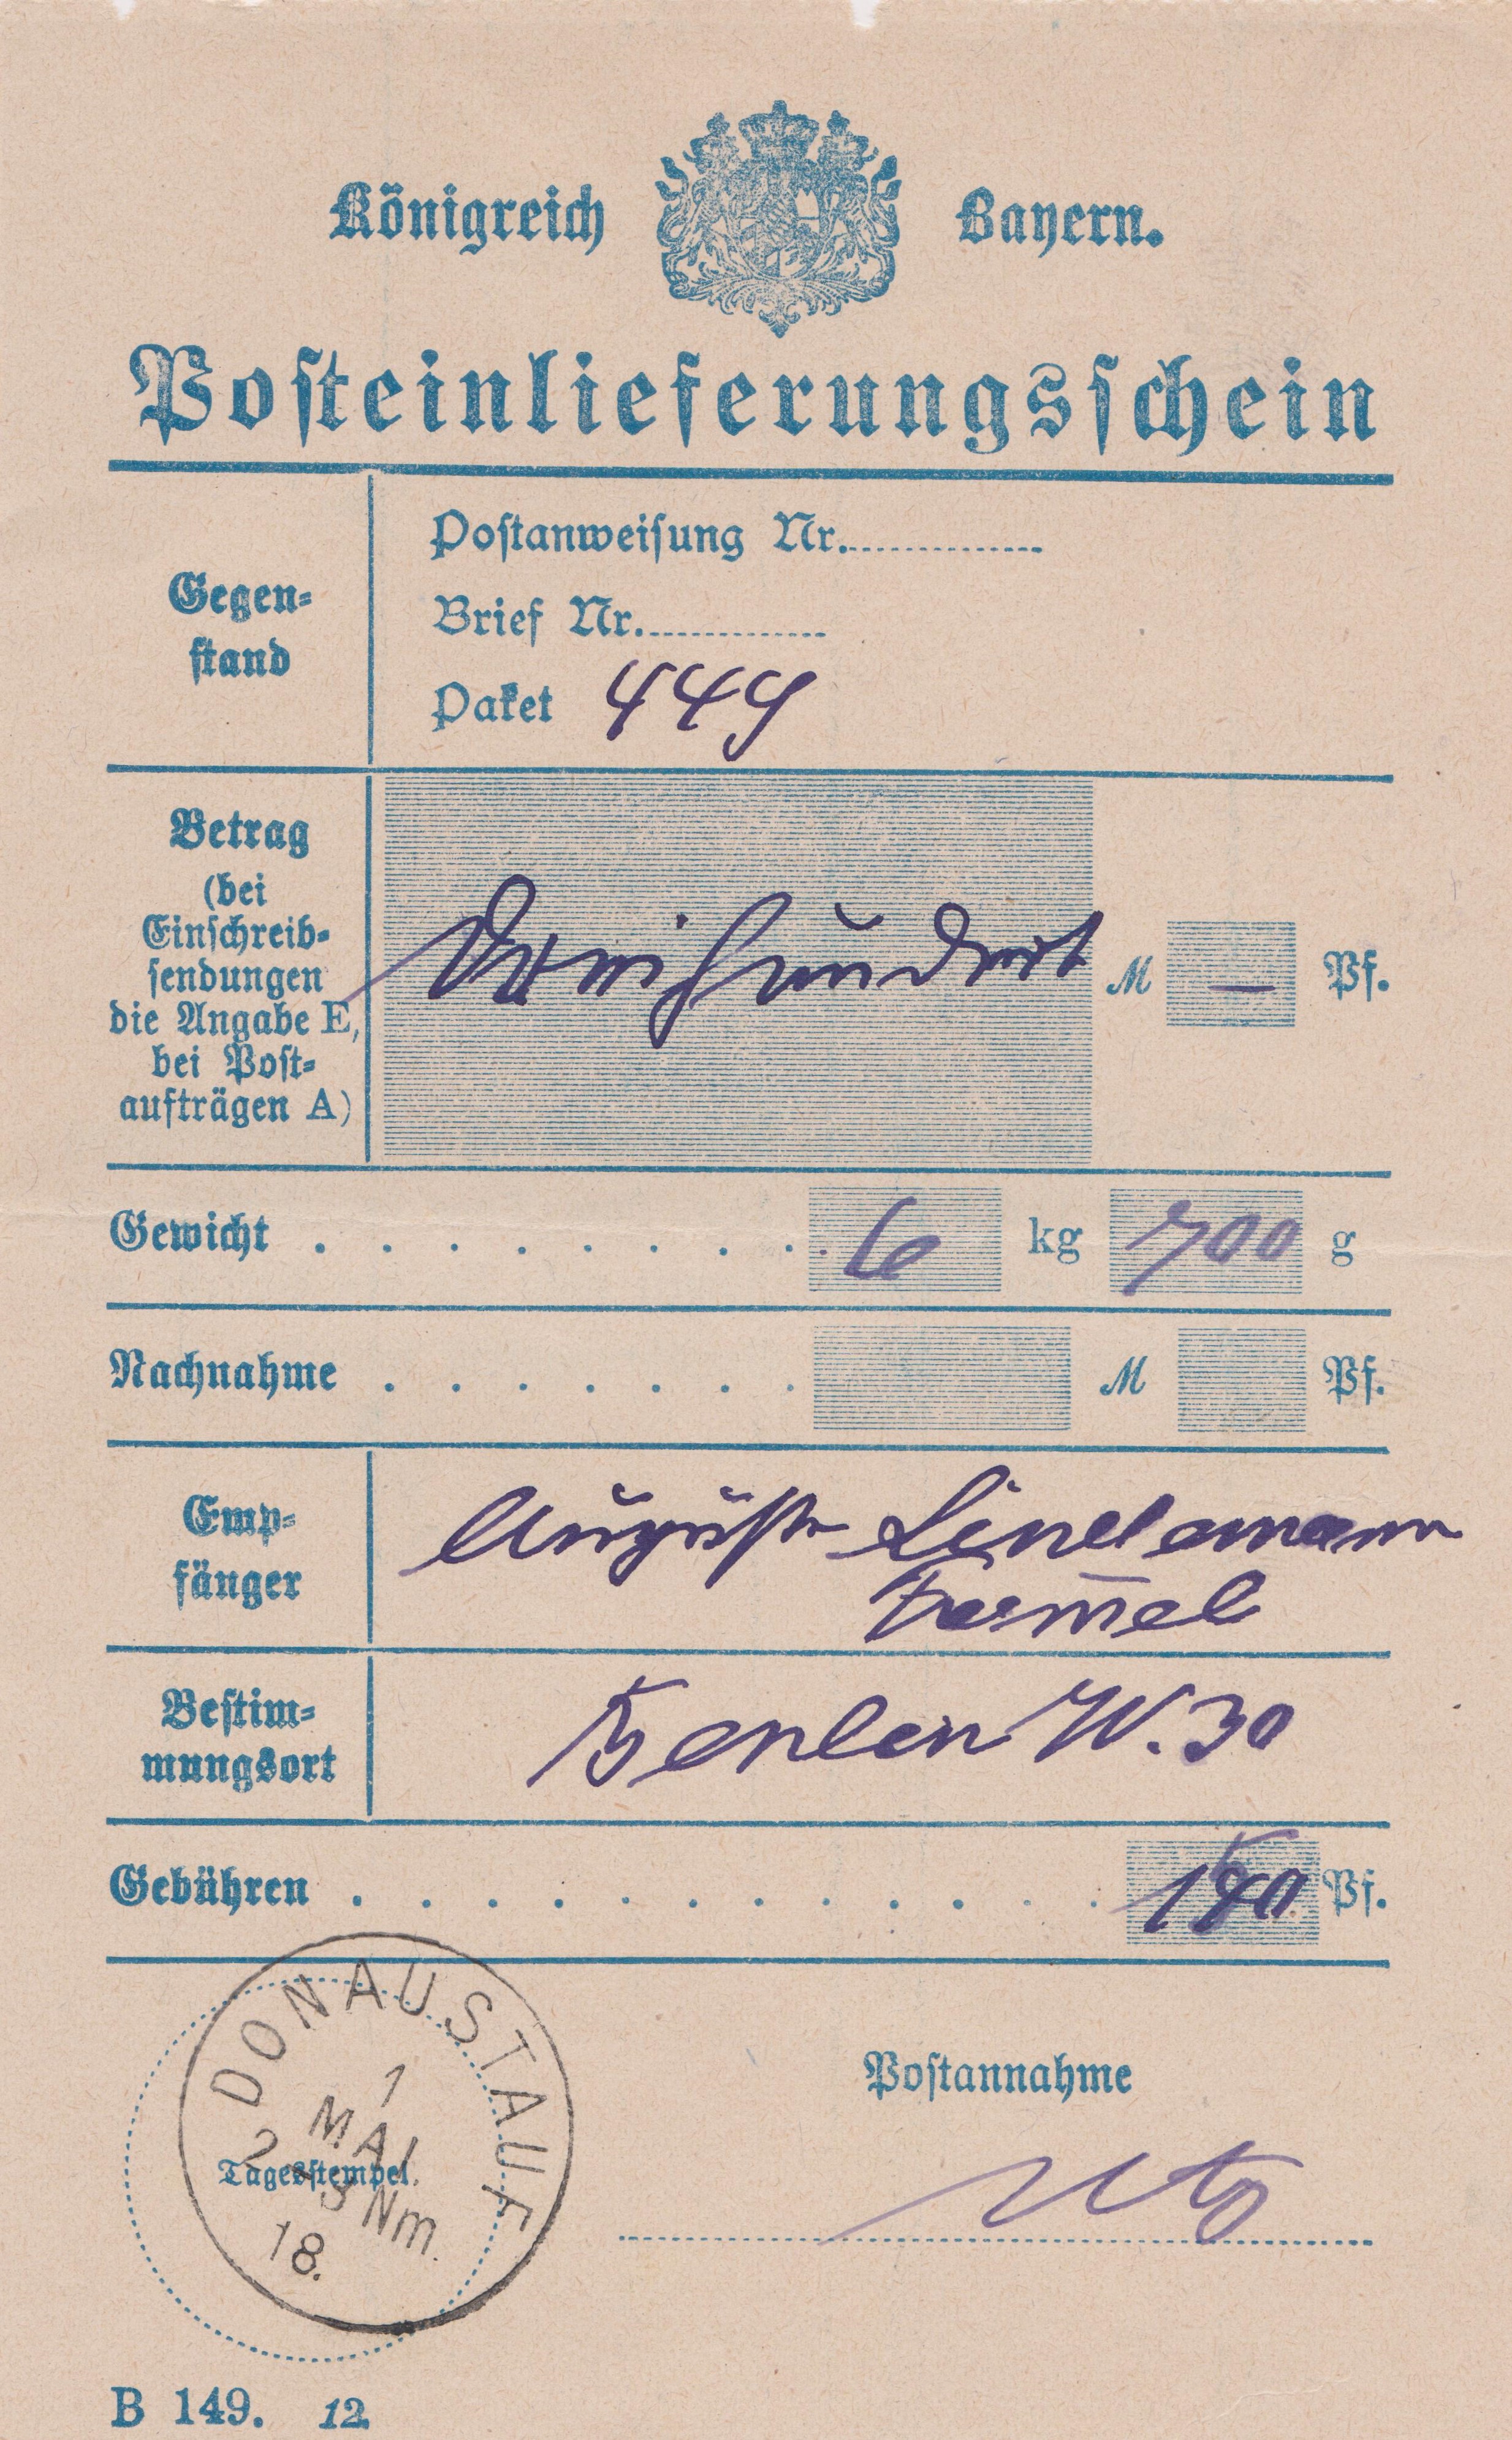 Königreich Bayern.
Posteinlieferungsschein
Gegen-
stand
Postanweisung Nr.
Brief Nr.
Paket 449
Betrag
(bei
Einschreib-
sendungen
die Angabe E,
bei Post-
aufträgen A)
Dreihundert M — Pf.
Gewicht 6 kg 700 g
Nachnahme M Pf.
Emp-
fänger
Auguste Lindemann
Bestim-
mungsort
Berlin W. 30
Gebühren Pf.
DONAUSTAUF
1
MAI
2-3 Nm.
18.
Tagesstempel.
Postannahme
B 149. 12.